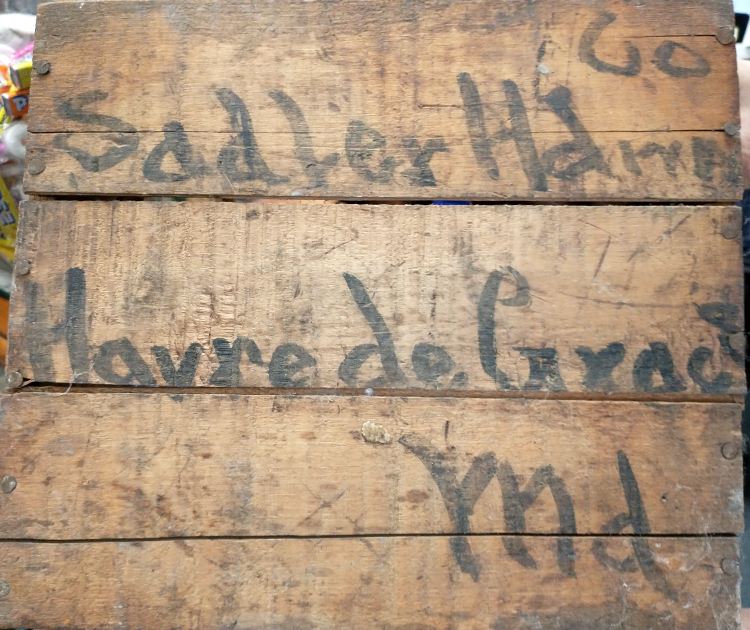 Co
Sadler Harn
Havre de Grace
Md